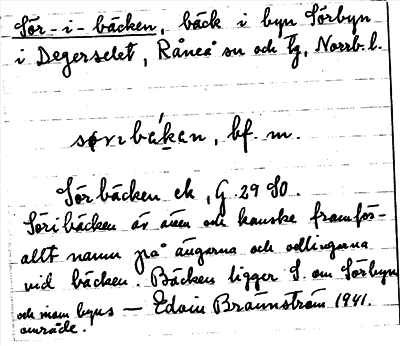 Sör-i-bäcken, bäck i byn Sörbyn
i Degerselet, Råneå sn och tg, Norrb. l.
sørɩbéken, bf. m.
Sörbäcken ek, G. 29 SO.
Söribäcken är även och kanske framför-
allt namn på ängarna och odlingarna
vid bäcken. Bäcken ligger S. om Sörbyn
och inom byns — Edvin Brännström 1941.
område.